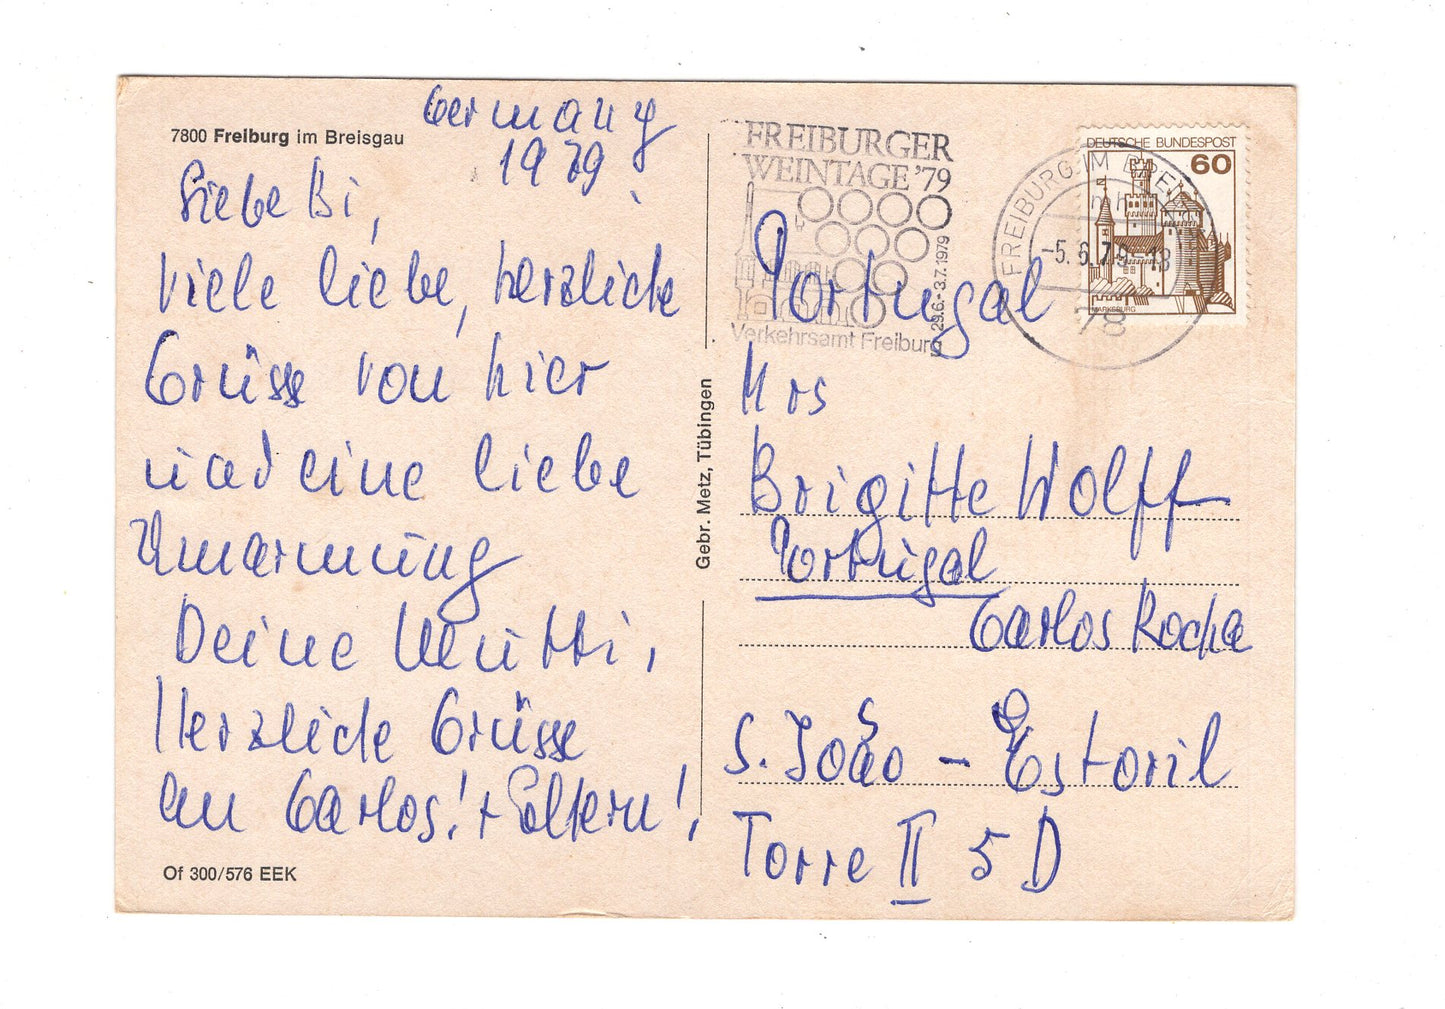 7800 Freiburg im Breisgau
Germany
1979
Liebe Bi,
viele liebe, herzliche
Grüsse von hier
und eine liebe
Umarmung
Deine Mutti,
Herzliche Grüsse
an Carlos! + Eltern!
Of 300/576 EEK
Gebr. Metz, Tübingen
FREIBURGER
WEINTAGE '79
29.6.-3.7.1979
Verkehrsamt Freiburg
FREIBURG IM
-5.6.79-18
78
DEUTSCHE BUNDESPOST
60
MARKSBURG
Portugal
Mrs
Brigitte Wolff
Portugal
Carlos Rocha
S. João - Estoril
Torre II 5 D